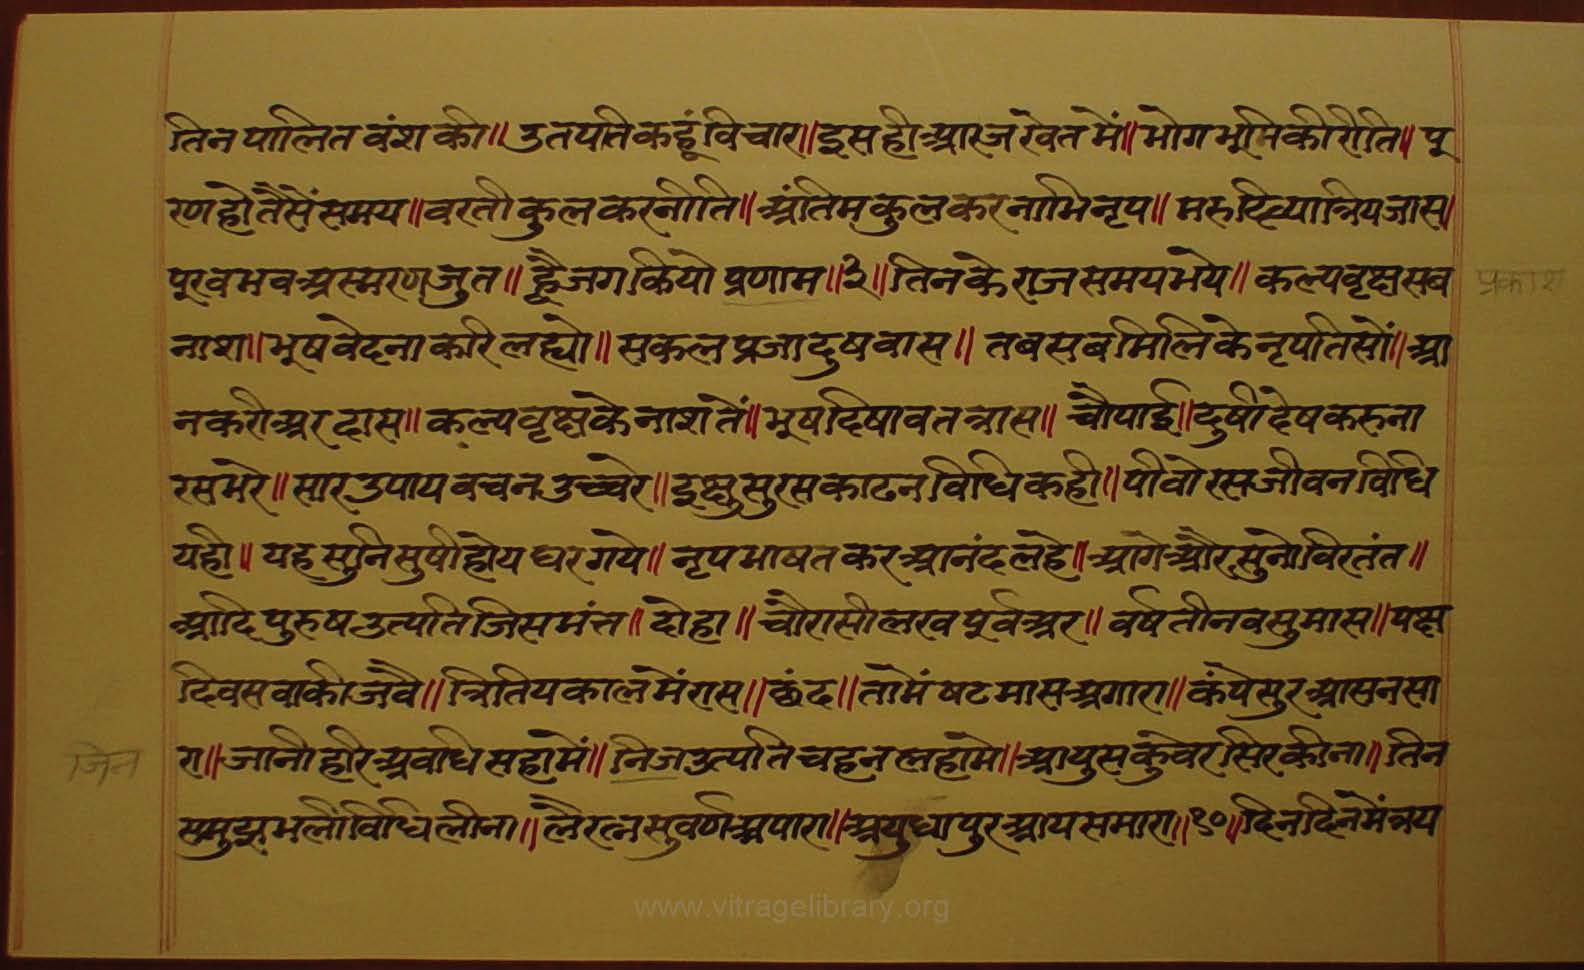 तिनपालितवंशकी॥उतपतिकहूंविचार॥इसहीआरजखेतमें॥भोगभूमिकीरीति॥पू
रणहोतैसेंसमय॥वरतीकुलकरनीति॥अंतिमकुलकरनाभिनृप॥मरुदिव्यात्रियजास॥
पूरवभवअस्मरणजुत॥ह्वैजगकियोप्रणाम॥३॥तिनकेराजसमयभये॥कल्पवृक्षसब प्रकाश
नाश॥भूषवेदनाकरिलह्यो॥सकलप्रजादुषवास॥तबसबमिलिकेनृपतिसों॥आ
नकरीअरदास॥कल्पवृक्षकेनाशतें॥भूषदिषावतत्रास॥चौपाई॥दुषीदेषकरुना
रसभरे॥सारउपायवचनउच्चरे॥इक्षुसुरसकाढनविधिकही॥पीवोरसजीवनविधि
यही॥यहसुनिसुषीहोयघरगये॥नृपभाषतकरआनंदलहे॥आगेऔरसुनोविरतंत॥
आदिपुरुषउत्पतिजिसमंत॥दोहा॥चौरासीलखपूर्वअर॥वर्षतीनवसुमास॥पक्ष
दिवसवाकीजवै॥त्रितियकालमेंरास॥छंद॥तामेंषटमासअगारा॥कंपेसुरआसनसा
जिन रा॥जानीहरिअवधिसहामें॥निजउत्पतिचहनलहामे॥आयुसकुवेरसिरकीना॥तिन
समुझभलीविधिलीना॥लैरत्नसुवर्णअपारा॥अयुधापुरआयसमारा॥१०॥दिनदिनमेंत्रय
www.vitragelibrary.org